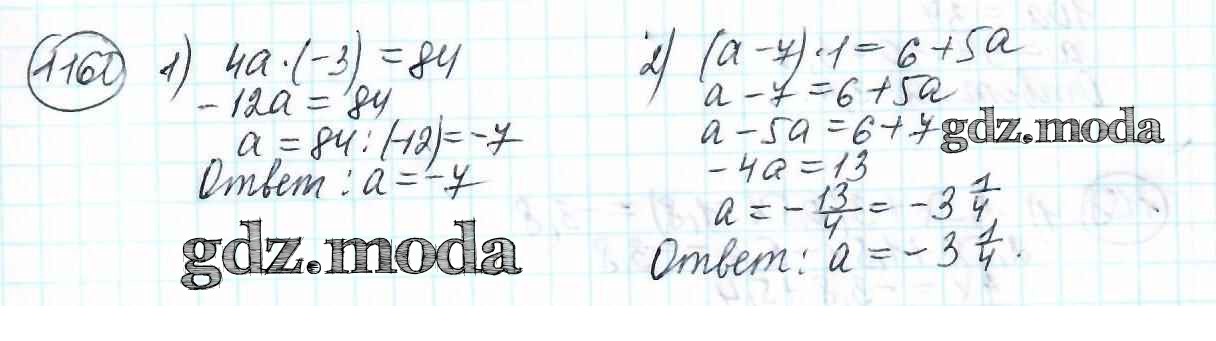 1160
1) 4a·(-3) = 84
-12a = 84
a = 84 : (-12) = -7
Ответ: a = -7
gdz.moda
2) (a - 7)·1 = 6 + 5a
a - 7 = 6 + 5a
a - 5a = 6 + 7
gdz.moda
-4a = 13
a = -13/4 = -3 1/4
Ответ: a = -3 1/4.